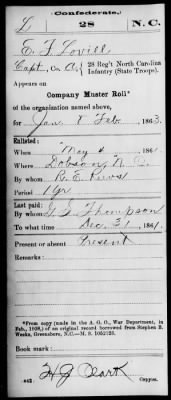 Confederate.
L 28 N.C.
E. F. Lovill
Capt., Co. A, 28 Reg't North Carolina Infantry (State Troops).
Appears on
Company Muster Roll*
of the organization named above,
for Jan & Feb, 1863.
Enlisted:
When May 4, 1861.
Where Dobson N.C.
By whom R. E. Reeves
Period 1 yr
Last paid:
By whom G. S. Thompson
To what time Dec. 31, 186
Present or absent Present
Remarks:
*From copy (made in the A. G. O., War Department, in
Feb., 1909,) of an original record borrowed from Stephen B.
Weeks, Greensboro, N.C.—M. S.
Book mark:
H J Clark
(642) Copyist.